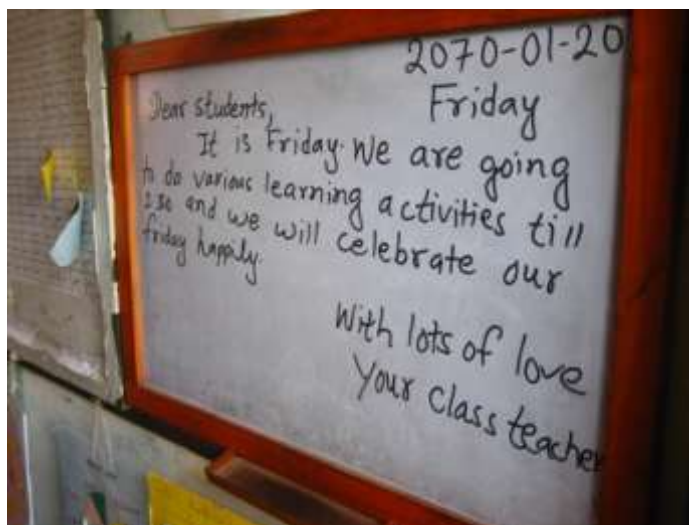 2070-01-20
Friday
Dear Students,
It is Friday. We are going
to do various learning activities till
and we will celebrate our
friday happily.
With lots of love
Your class teacher